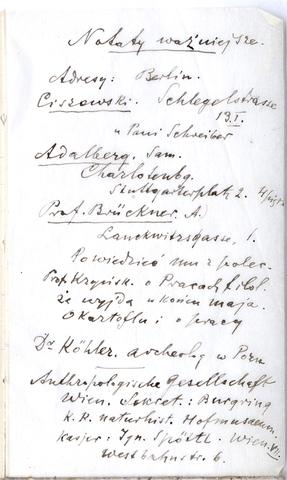 Notaty ważniejsze.
Adresy: Berlin.
Ciszewski. Schlegelstrasse
13 I.
u Pani Schreiber
Adalberg. Sam.
Charlotenbg.
Stuttgarterplatz 2.
Prof. Brückner. A.
Lanckwitzgasse, 1.
Powiedzieć mu z polec.
Prof. Kryńsk. o Pracach filol.
że wyjdą w końcu maja.
o kartoflu i o pracy
Dr Köhler. archeolog w Pozn
Anthropologische Gesellschaft
Wien. Sekret.: Burgring
k. k. naturhist. Hofmuseum.
Kasjer: Ign. Spöttl. Wien. VII.
Westbahnstr. 6.